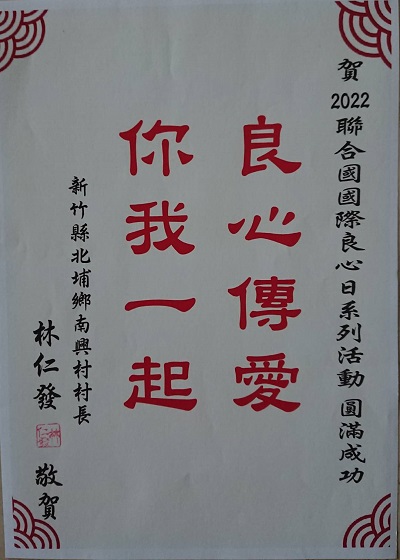 賀2022聯合國國際良心日系列活動 圓滿成功
良心傳愛
你我一起
新竹縣北埔鄉南興村村長
林仁發 敬賀